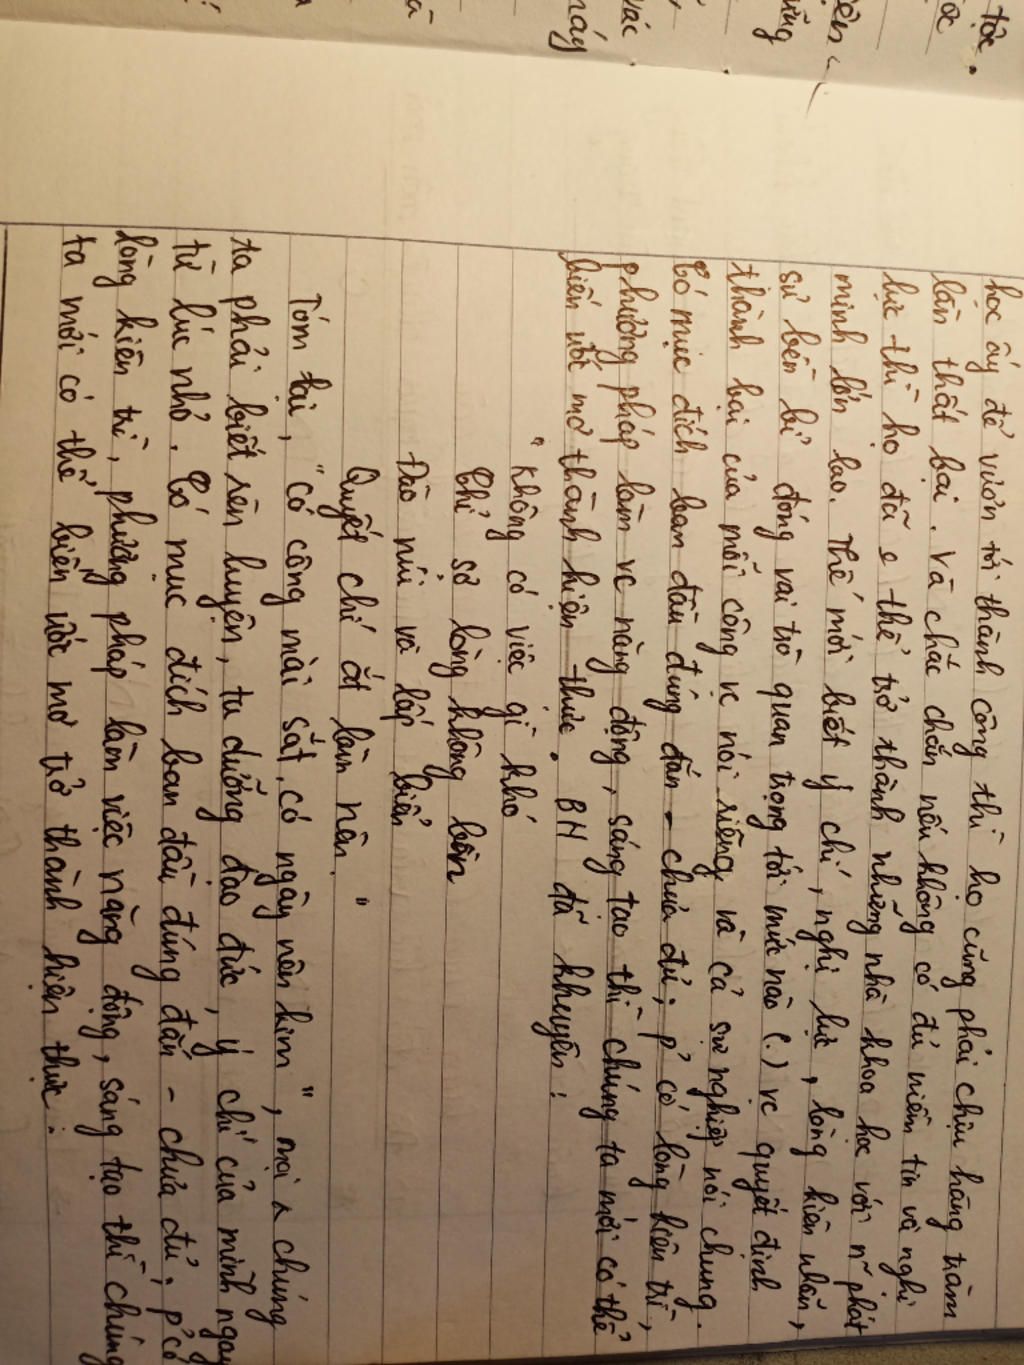 tộc.
học ấy để vươn tới thành công thì họ cũng phải chịu hàng trăm
lần thất bại. Và chắc chắn nếu không có đủ niềm tin và nghị
lực thì họ đã e thể trở thành những nhà khoa học với n~ phát
minh lớn lao. Thế mới biết ý chí, nghị lực, lòng kiên nhẫn,
sự bền bỉ đóng vai trò quan trọng tới mức nào (.) vc quyết định
thành bại của mỗi công vc nói riêng và cả sự nghiệp nói chung.
Có mục đích ban đầu đúng đắn - chưa đủ; p' có lòng kiên trì,
phương pháp làm vc năng động, sáng tạo thì chúng ta mới có thể
biến ước mơ thành hiện thực. BH đã khuyên:
"Không có việc gì khó
Chỉ sợ lòng không bền
Đào núi và lấp biển
Quyết chí ắt làm nên."
Tóm lại, "có công mài sắt, có ngày nên kim", mọi chúng
ta phải biết rèn luyện, tu dưỡng đạo đức, ý chí của mình ngay
từ lúc nhỏ. Có mục đích ban đầu đúng đắn - chưa đủ; p' có
lòng kiên trì, phương pháp làm việc năng động, sáng tạo thì chúng
ta mới có thể biến ước mơ trở thành hiện thực.